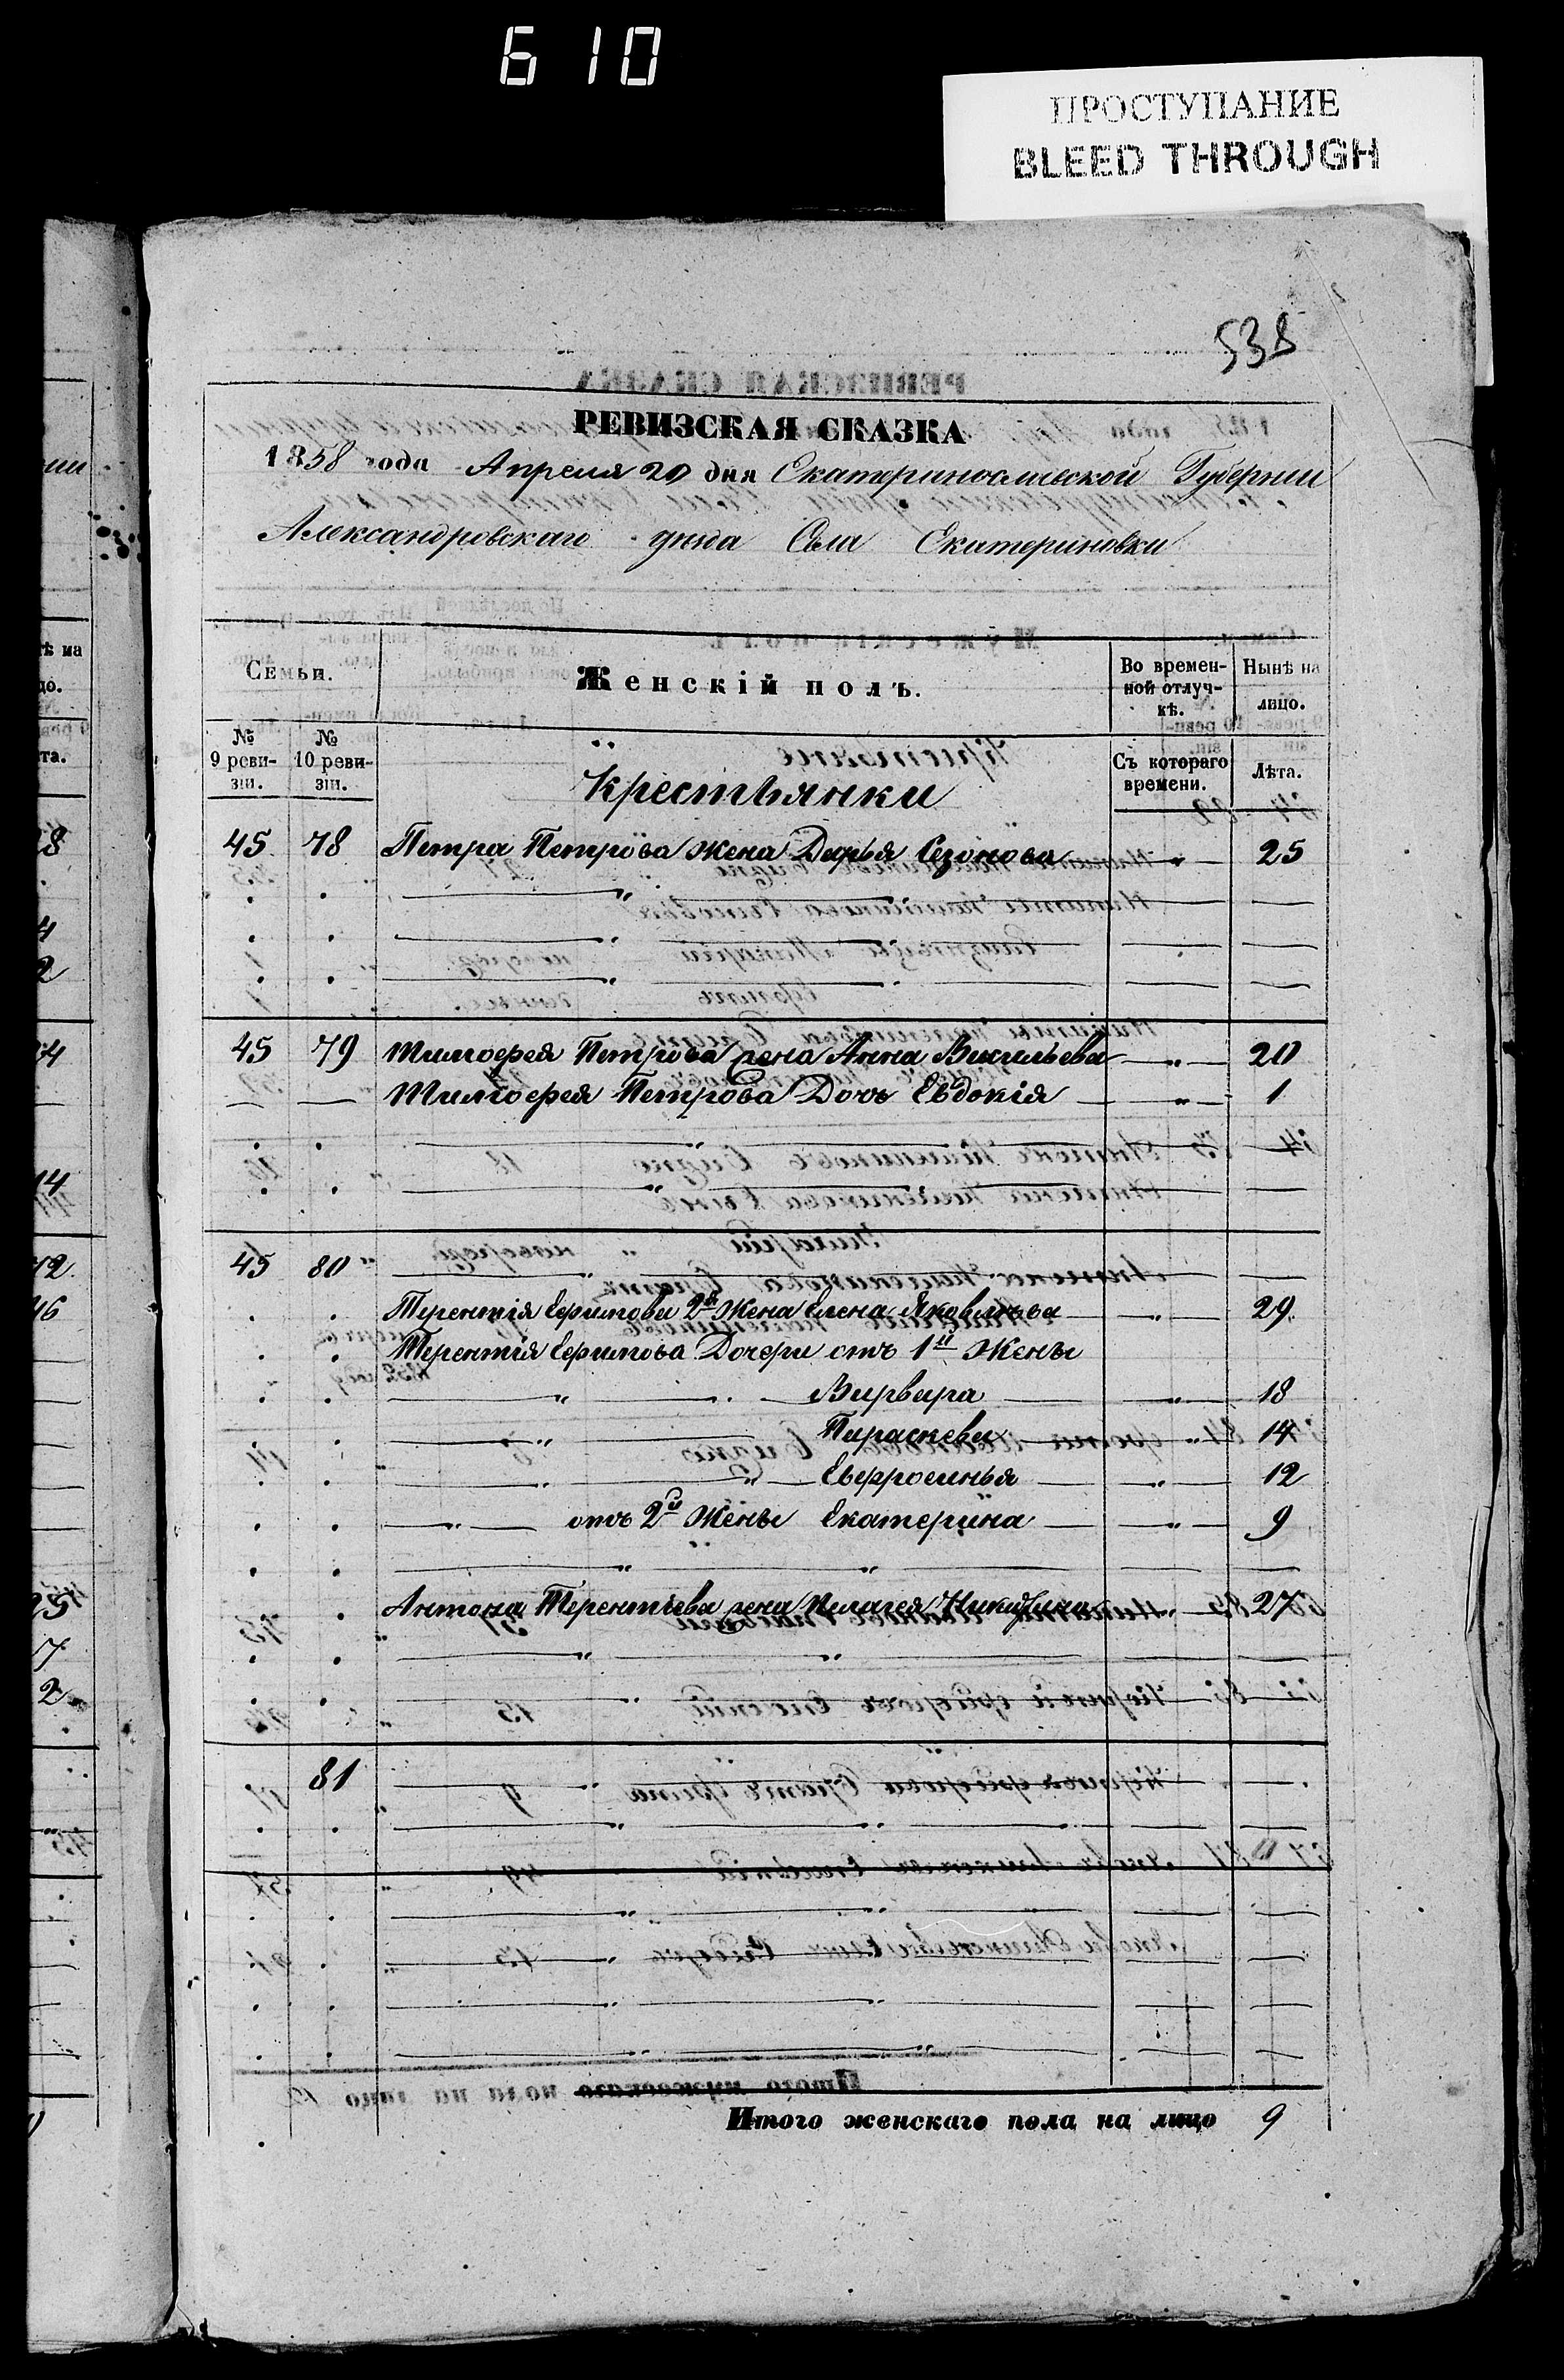 610
ПРОСТУПАНИЕ
BLEED THROUGH
538
РЕВИЗСКАЯ СКАЗКА
1858 года Апреля 20 дня Екатеринославской Губернии
Александровскаго уѣзда Села Екатериновки
Семьи.
Женскій полъ.
Во времен-
ной отлуч-
кѣ.
Нынѣ на
лицо.
№
9 реви-
зіи.
№
10 реви-
зіи.
Съ котораго
времени.
Лѣта.
Крестьянки
45 78 Петра Петрова жена Дарья Сезонова " 25
45 79 Тимофея Петрова жена Анна Васильева " 20
Тимофея Петрова Дочь Евдокія " 1
45 80
Терентія Ефимова 2я Жена Елена Яковлева " 29
Терентія Ефимова Дочери отъ 1й Жены
" Варвара " 18
" Параскева " 14
" Евфросинья " 12
" отъ 2й Жены Екатерина " 9
Антона Терентьева жена Пелагея 27
81
Итого женскаго пола на лицо 9